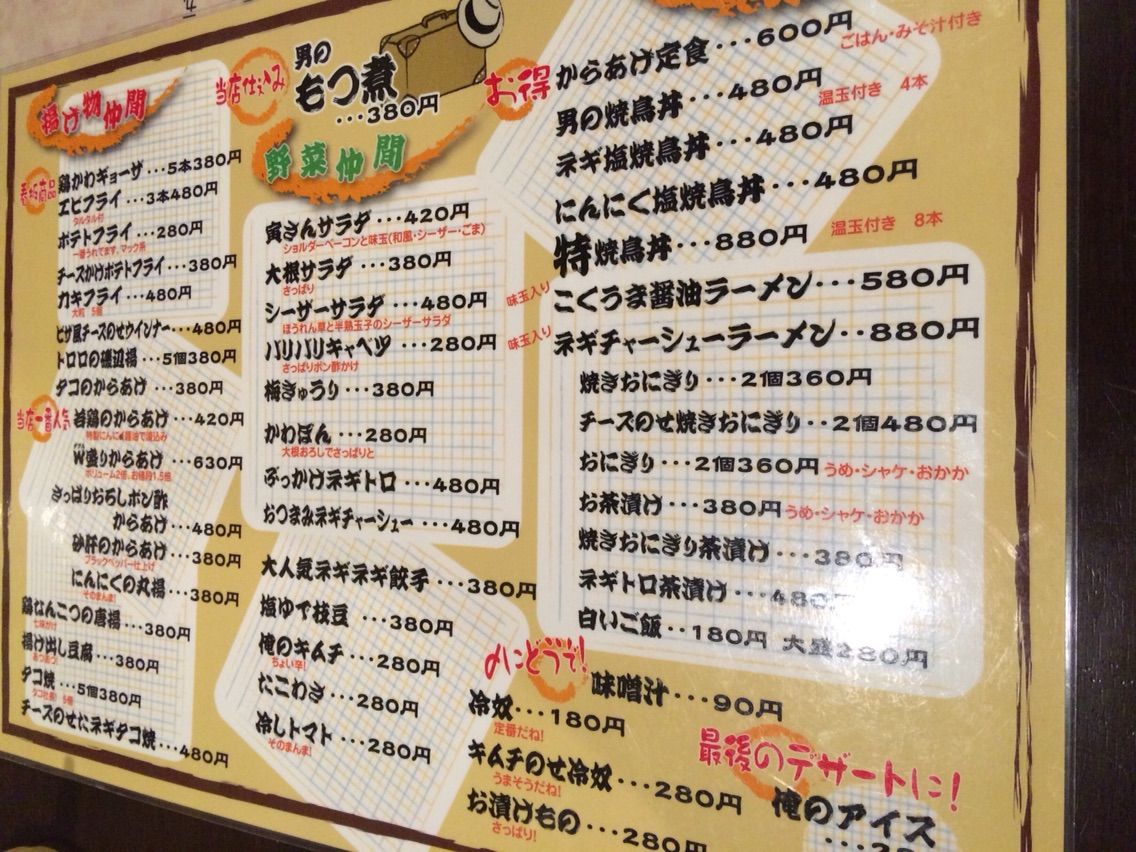 揚げ物仲間
看板商品
鶏かわギョーザ…5本380円
エビフライ…3本480円
タルタル付
ポテトフライ…280円
一番うれてます、マック系
チーズかけポテトフライ…380円
カキフライ…480円
大粒 5個
ピザ風チーズのせウインナー…480円
トロロの磯辺揚…5個380円
タコのからあげ…380円
当店一番人気
若鶏のからあげ…420円
特製にんにく醤油で漬込み
W盛りからあげ…630円
ダブル
ボリューム2倍、お値段1.5倍
さっぱりおろしポン酢
からあげ…480円
砂肝のからあげ…380円
ブラックペッパー仕上げ
にんにくの丸揚…380円
そのまんま!
鶏なんこつの唐揚…380円
七味がけ
揚げ出し豆腐…380円
あつあつ!
タコ焼…5個380円
タコ社長! 5個
チーズのせにネギタコ焼…480円
当店仕込み
男の
もつ煮
…380円
野菜仲間
寅さんサラダ…420円
ショルダーベーコンと味玉(和風・シーザー・ごま)
大根サラダ…380円
さっぱり
シーザーサラダ…480円
ほうれん草と半熟玉子のシーザーサラダ
バリバリキャベツ…280円
さっぱりポン酢かけ
梅きゅうり…380円
かわぽん…280円
大根おろしでさっぱりと
ぶっかけネギトロ…480円
おつまみネギチャーシュー…480円
大人気ネギネギ餃子…380円
塩ゆで枝豆…380円
俺のキムチ…280円
ちょい辛!
たこわさ…280円
冷しトマト…280円
そのまんま!
お得
からあげ定食…600円
ごはん・みそ汁付き
男の焼鳥丼…480円
温玉付き 4本
ネギ塩焼鳥丼…480円
にんにく塩焼鳥丼…480円
特焼鳥丼…880円
温玉付き 8本
味玉入り
こくうま醤油ラーメン…580円
味玉入り
ネギチャーシューラーメン‥880円
焼きおにぎり…2個360円
チーズのせ焼きおにぎり‥2個480円
おにぎり…2個360円 うめ・シャケ・おかか
お茶漬け…380円 うめ・シャケ・おかか
焼きおにぎり茶漬け…380円
ネギトロ茶漬け…480円
白いご飯‥180円 大盛280円
〆にどうで!
味噌汁…90円
冷奴…180円
定番だね!
キムチのせ冷奴…280円
うまそうだね!
お漬けもの…280円
さっぱり!
最後のデザートに!
俺のアイス